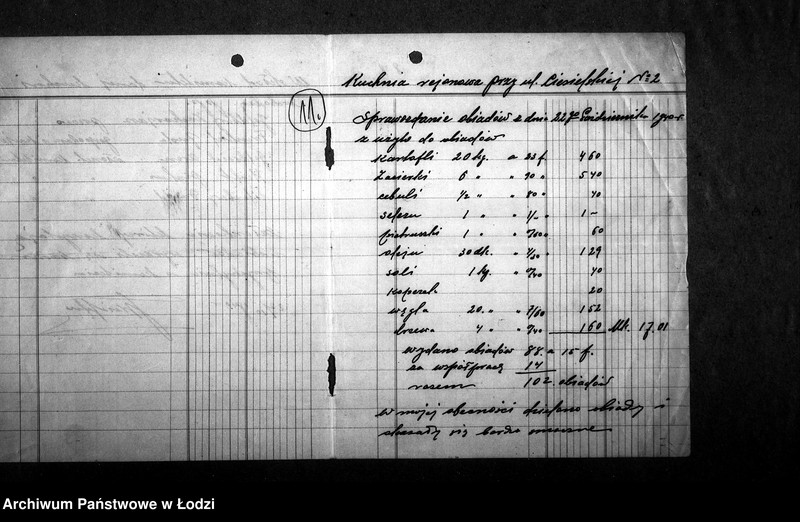 Kuchnia rejonowa przy ul. Ciesielskiej No 2
11.
Sprawozdanie obiadów z dnia 22go Października
zużyto do obiadów
Kartofli 20 kg. a 23 f. 4 60
Zacierki 6 " " 90 " 5 40
cebuli 1/2 " " 80 " 40
selera 1 " " 1/- " 1 -
pietruszki 1 " " -/60 " 60
oleju 30 dk. " 1 29
soli 1 kg. " -/40 40
koperek 20
węgla 20 " " 7/60 1 52
drzewa 4 " " -/40 1 60 Mk. 17.01
wydano obiadów 88 a 15 f.
za współpracę 14
razem 102 obiadów
w mojej obecności dzielono obiady i
okazały się bardzo smaczne
Archiwum Państwowe w Łodzi